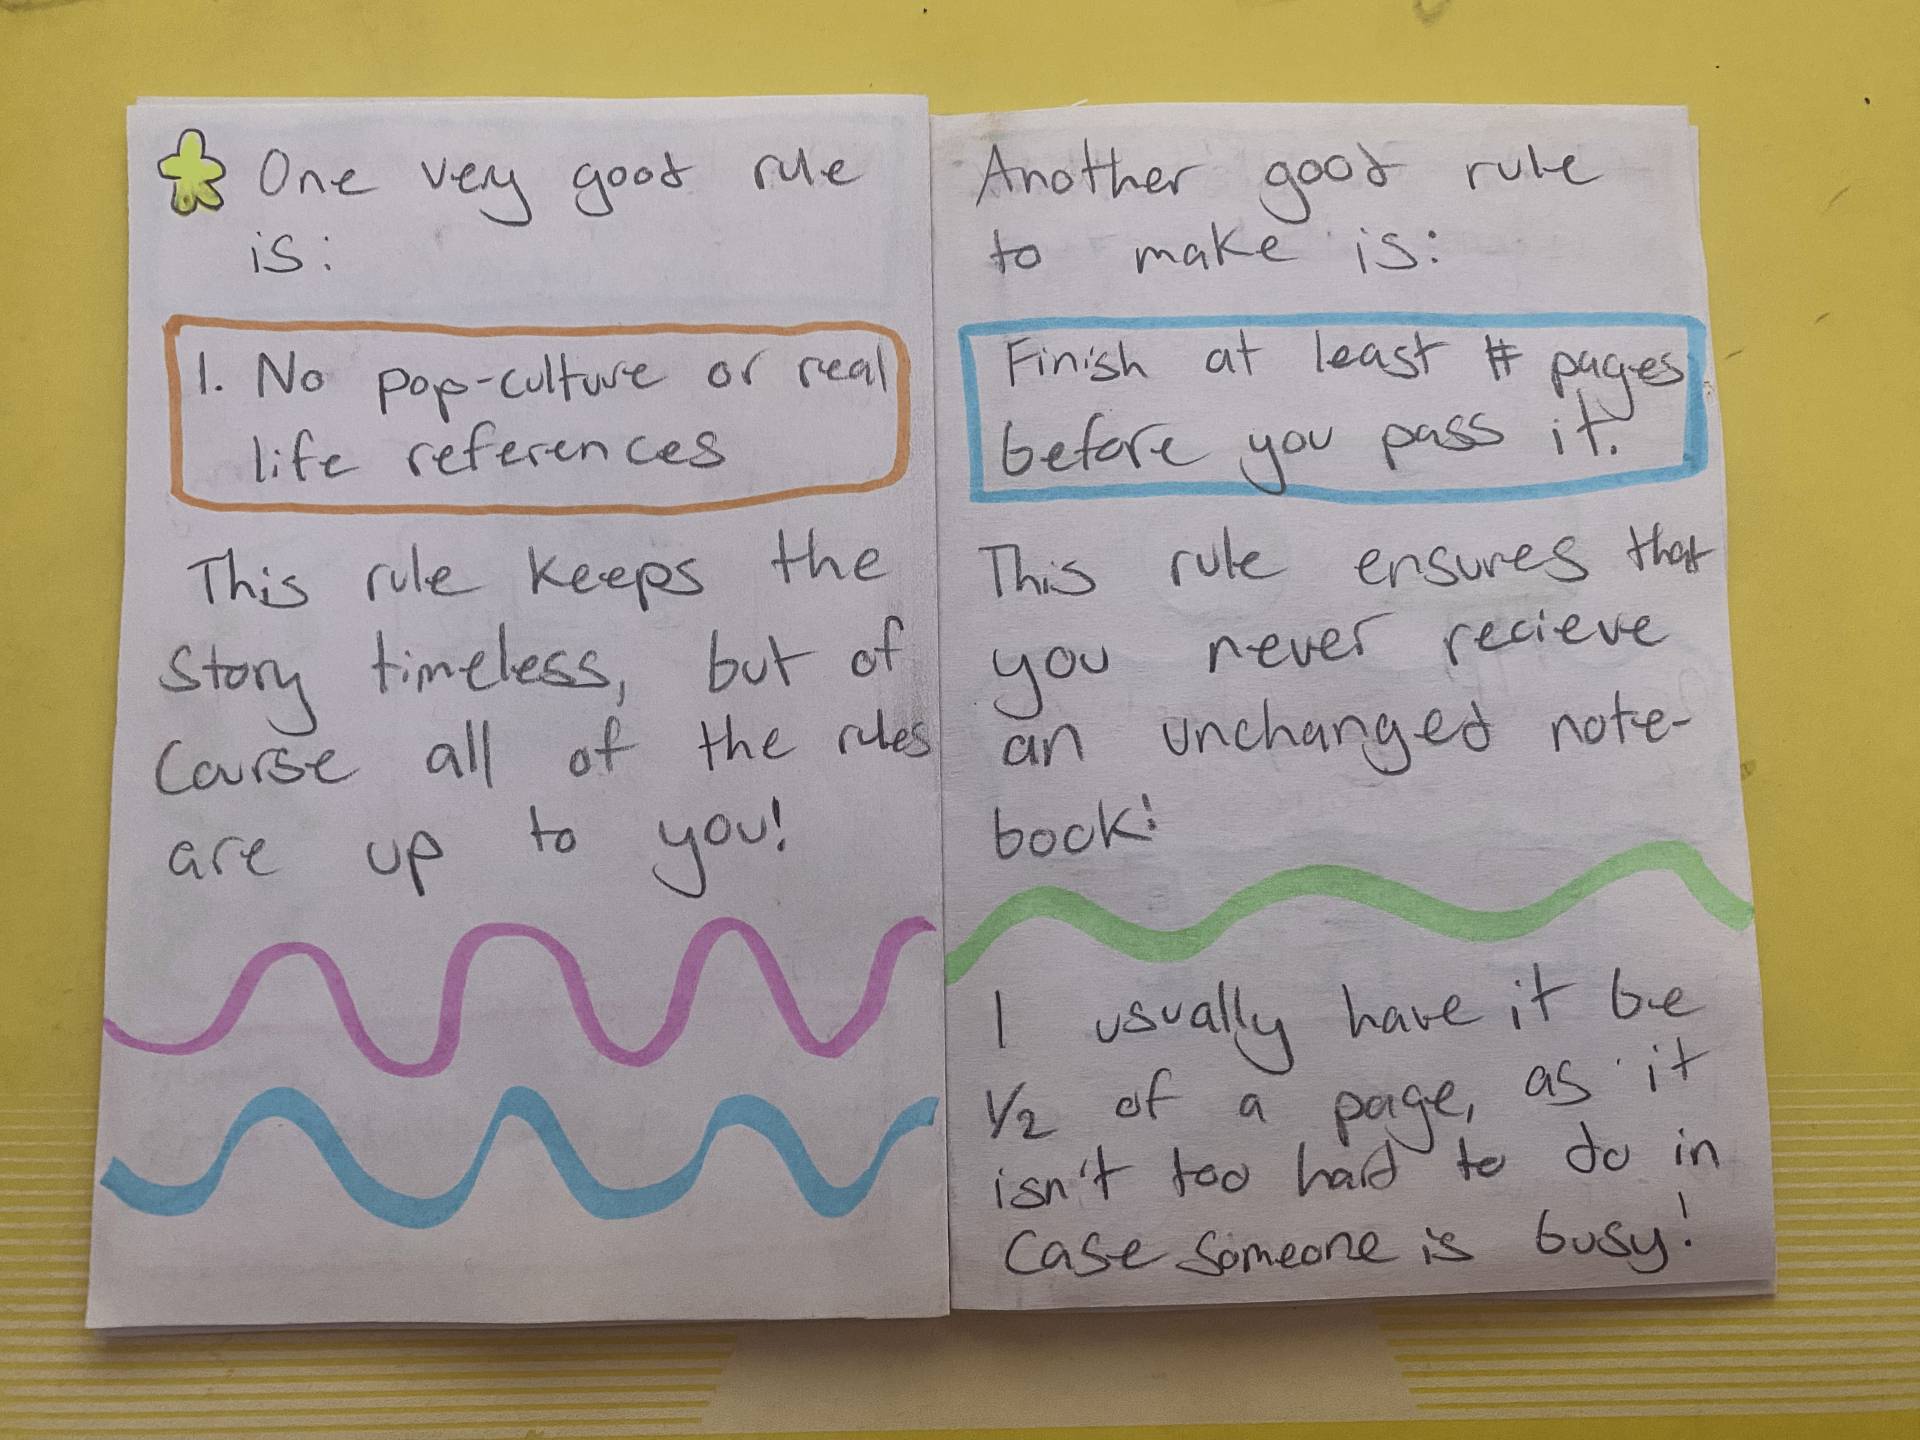 One very good rule
is:
1. No pop-culture or real
life references
This rule keeps the
story timeless, but of
Course all of the rules
are up to you!
Another good rule
to make is:
Finish at least # pages
before you pass it.
This rule ensures that
you never recieve
an unchanged note-
book!
I usually have it be
1/2 of a page, as it
isn't too hard to do in
case someone is busy!